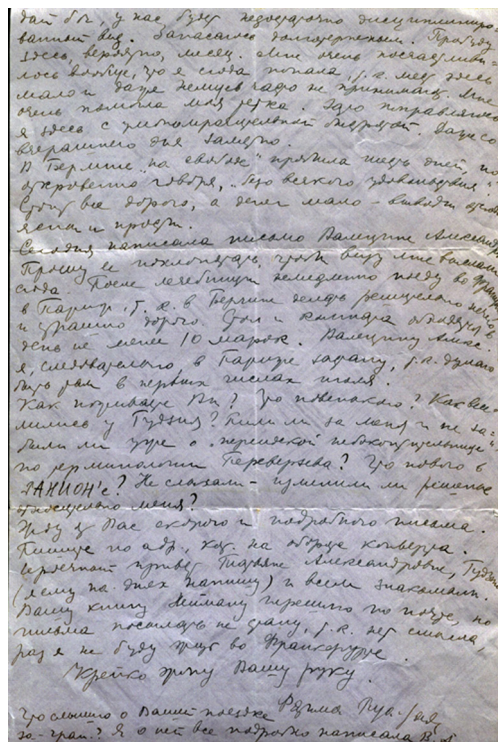 дай бы, у нас будет недостаточно дисциплиниро-
ванный вид. Запасаюсь долготерпением. Пробуду
здесь, вероятно, месяц. Мне очень посчастливи-
лось вообще, что я сюда попала, т.к. мест здесь
мало и даже немцев надо не принимают. Мне
очень помогла моя тетка. Зато поправляюсь
я здесь с умопомрачительной быстротой. Даже со
вчерашнего дня заметно.
В Берлине "на свободе" прожила шесть дней, но
откровенно говоря, "безо всякого удовольствия".
Стоит все дорого, а денег мало - выводы
ясны и просты.
Сегодня написала письмо Валентине Александр.
Прошу ее похлопотать, чтобы визу мне выслали
сюда. После лечебницы немедленно поеду во Фран.
в Париж, т.к. в Берлине делать решительно нечего
и страшно дорого. Стол и комната обходятся в
день не менее 10 марок. Валентину Алекс.
я, следовательно, в Париже застану, т.к. думаю
быть там в первых числах июля.
Как поживаете Вы? Что новенького? Как все
у Гудзия? Были ли за меня и не за-
были ли уже о "персидской
по терминологии Переверзева? Что нового в
РАНИОН'е? Не слыхали - изменили ли решение
относительно меня?
Жду от Вас скорого и подробного письма.
Пишите по адр., кот. на обороте конверта.
Сердечный привет Татьяне Александровне, Гудзию
(ему на днях напишу) и всем знакомым.
Вашу книгу Нейману перешлю по почте, но
письма посылать не стану, т.к. нет смысла,
раз я не буду жить во Франкфурте.
Крепко жму Вашу руку.
Что слышно о Вашей поездке
за-гран.? Я о ней все подробно написала В. А.